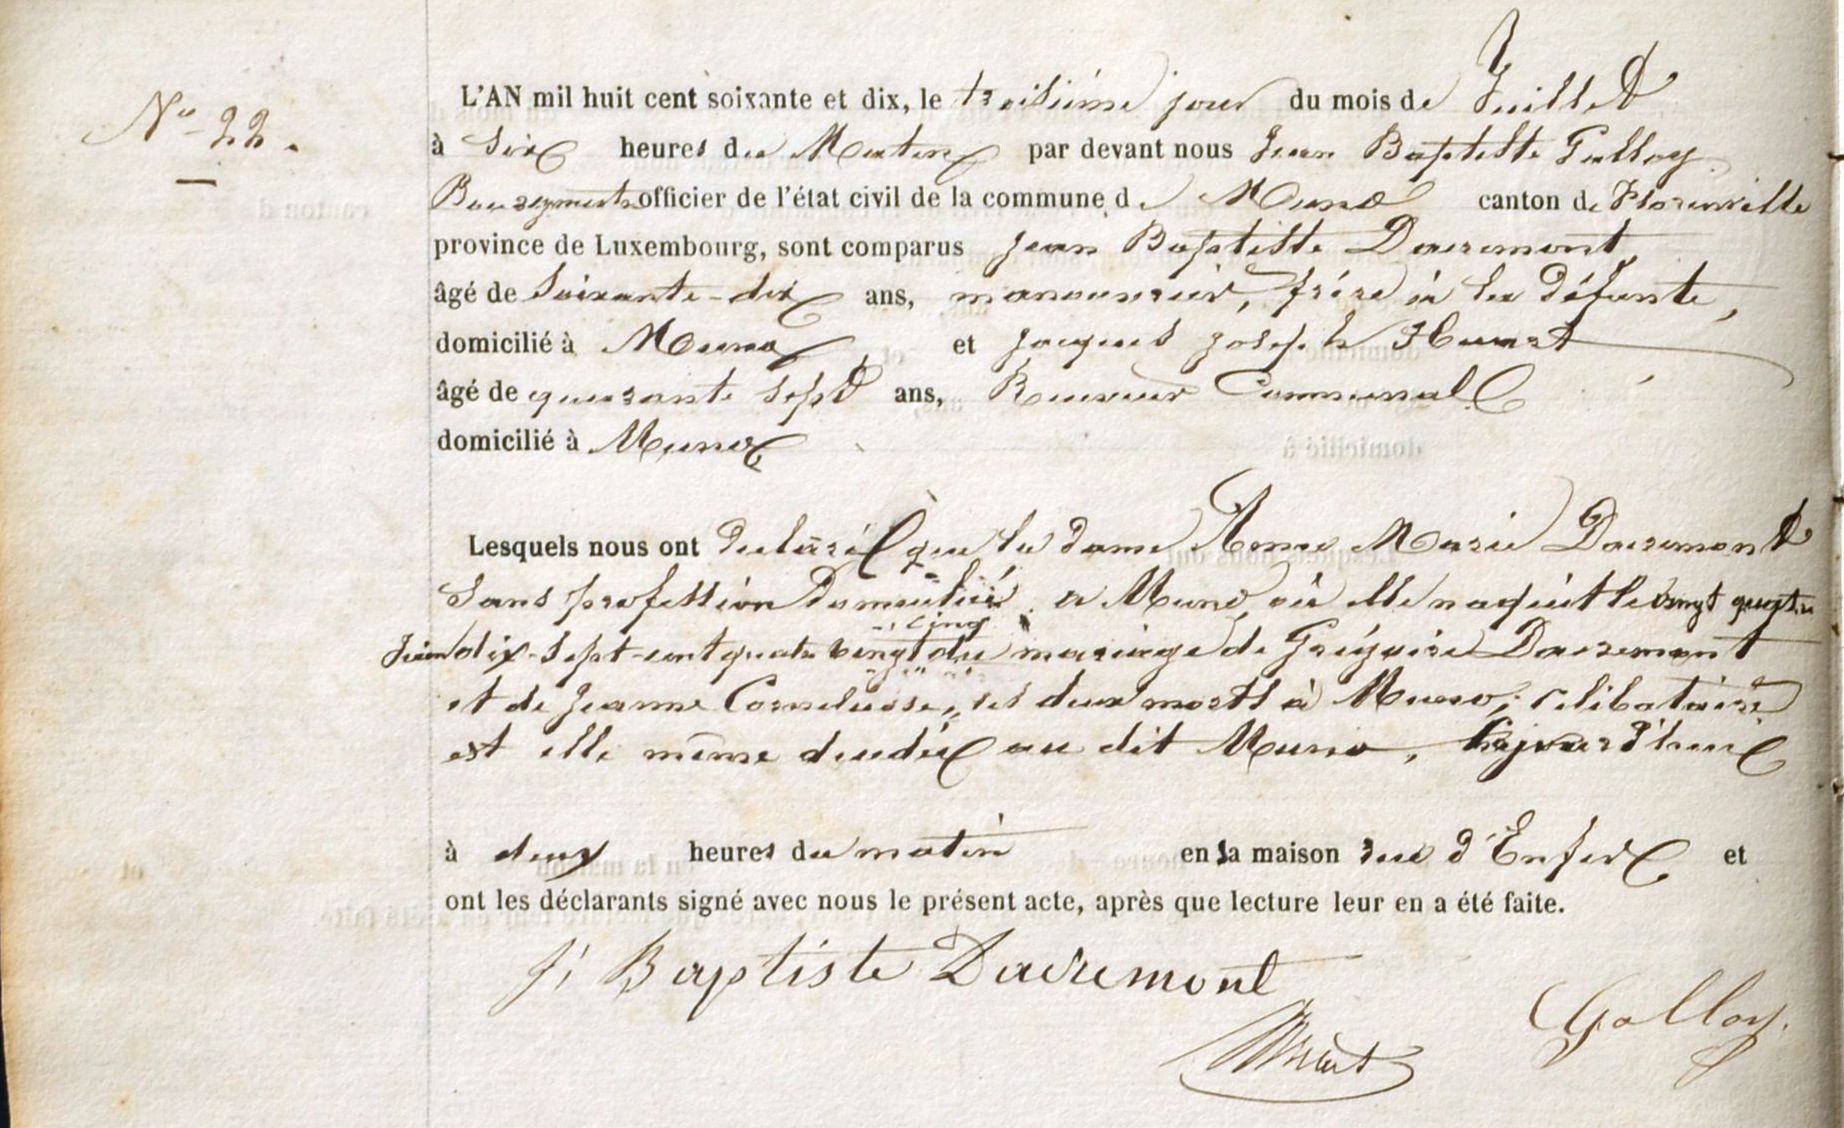 N° 22.
L'AN mil huit cent soixante et dix, le troisième jour du mois de Juillet
à Six heures du Matin par devant nous Jean Baptiste Galloy
Bourgmestre officier de l'état civil de la commune de Muno canton de Florenville
province de Luxembourg, sont comparus Jean Baptiste Dacremont,
âgé de Soixante-dix ans, manouvrier, frère à la défunte,
domicilié à Muno et Jacques Joseph Huart
âgé de quarante sept ans, Receveur Communal
domicilié à Muno
Lesquels nous ont déclaré que la dame Anne Marie Dacremont
Sans profession Domiciliée à Muno, où elle naquit le vingt quatre
cinq
Juin dix-sept-cent quatre vingt du mariage de Grégoire Dacremont
et de Jeanne les deux morts à Muno; célibataire
est elle même décédée au dit Muno, aujourd'hui
à deux heures du matin en sa maison rue d'Enfer et
ont les déclarants signé avec nous le présent acte, après que lecture leur en a été faite.
J. Baptiste Dacremont
Huart
Galloy